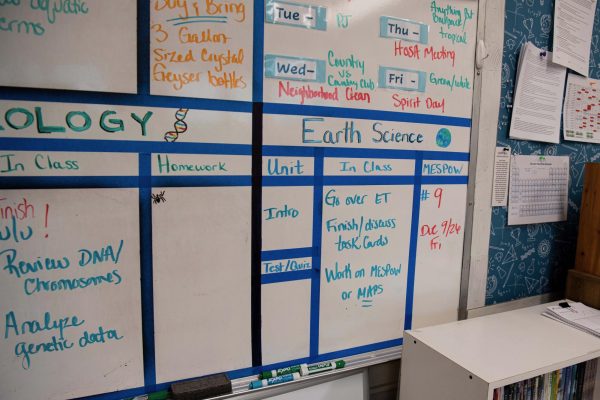 aquatic
terms
Buy & Bring
3 Gallon
Sized Crystal
Geyser bottles
Tue-
PJ
Wed-
Country
vs
Country Club
Neighborhood Clean
Anything But
Backpack
tropical
Thu-
HOSA Meeting
Fri-
Green/white
Spirit Day
OLOGY
In Class
Homework
Finish
Lulu !
Review DNA/
Chromosomes
Analyze
genetic data
Earth Science
Unit
In Class
MESPOW
Intro
Test/Quiz
Go over ET
Finish/discuss
task cards
Work on MESPOW
or MAPS
# 9
Due 9/26
Fri